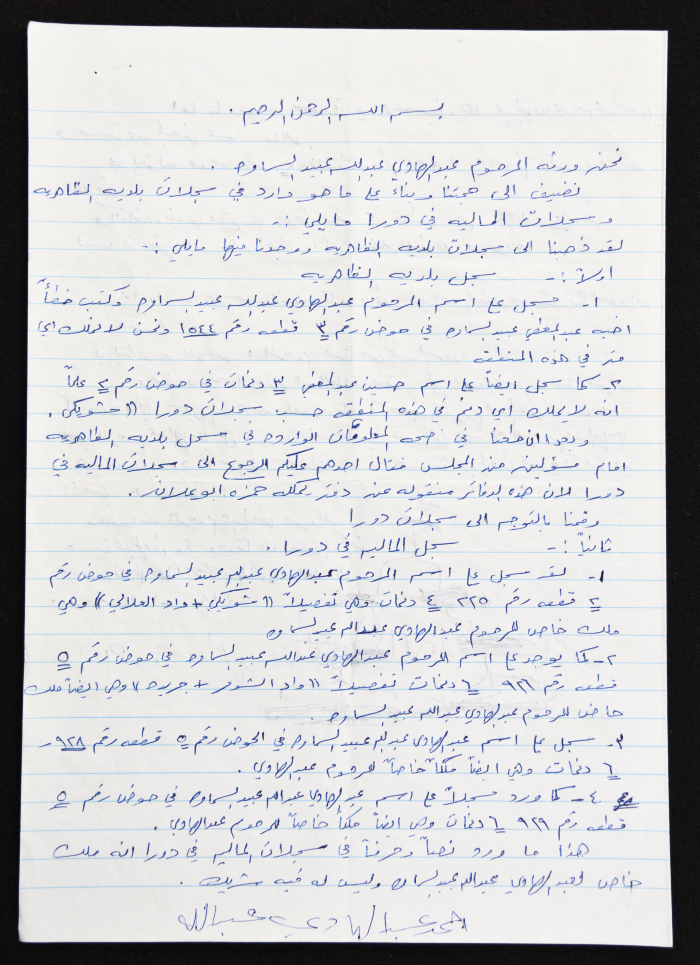 بسم الله الرحمن الرحيم .
نحن ورثه المرحوم عبد الهادي عبدالله عبيد السماره .
نضيف الى حجتنا وبناءً على ما هو وارد في سجلات بلديه الظاهريه
و سجلات الماليه في دورا مايلي :-
لقد ذهبنا الى سجلات بلديه الظاهريه ووجدنا فيها مايلي :-
اولاً :- سجل بلديه الظاهريه
١- مسجل على اسم المرحوم عبد الهادي عبدالله عبيد السماره وكتب خطأً
اخيه عبد المعطي عبيد السماره في حوض رقم ٣ قطعه رقم ١٥٤٤ ونحن لا نملك اي
متر في هذه المنطقه
٢- كما سجل ايضاً على اسم حسين عبد المعطي ٣ دنمات في حوض رقم ٢ علماً
انه لايملك اي دنم في هذه المنطقه حسب سجلات دورا (( شويكي .
في صحه المعلومات الوارده في سجل بلديه الظاهريه
امام مسؤلين من المجلس فقال احدهم عليكم الرجوع الى سجلات الماليه في
دورا لان هذه الدفاتر منقوله عن دفتر يملكه حمزه ابو علان .
وقمنا بالتوجه الى سجلات دورا
ثانياً :- سجل الماليه في دورا .
١- لقد سجل على اسم المرحوم عبد الهادي عبدالله عبيد السماره في حوض رقم
٢ قطعه رقم ٢٢٥ ٤ دنمات وهي تفصيلاً (( شويكي + واد العلالي )) وهي
ملك خاص للمرحوم عبد الهادي عبدالله عبيد السماره
٢- كما يوجد على اسم المرحوم عبد الهادي عبدالله عبيد السماره في حوض رقم ٥
قطعه رقم ٩٢٦ ٦ دنمات تفصيلاً (( واد + )) وهي ايضاً ملك
خاص للمرحوم عبد الهادي عبدالله عبيد السماره .
٣- سجل على اسم عبد الهادي عبدالله عبيد السماره في الحوض رقم ٥ قطعه رقم ٩٢٨-
٦ دنمات وهي ايضاً ملكاً خاصاً للمرحوم عبد الهادي .
٤- كما ورد مسجلاً على اسم عبد الهادي عبدالله عبيد السماره في حوض رقم ٥
قطعه رقم ٩٢٩ ٦ دنمات وهي ايضاً ملكاً خاصاً للمرحوم عبد الهادي .
هذا ما ورد نصاً وحرفاً في سجلات الماليه في دورا انه ملك
خاص لعبد الهادي عبدالله عبيد السماره وليس له فيه شريك .
عبد الهادي عبدالله